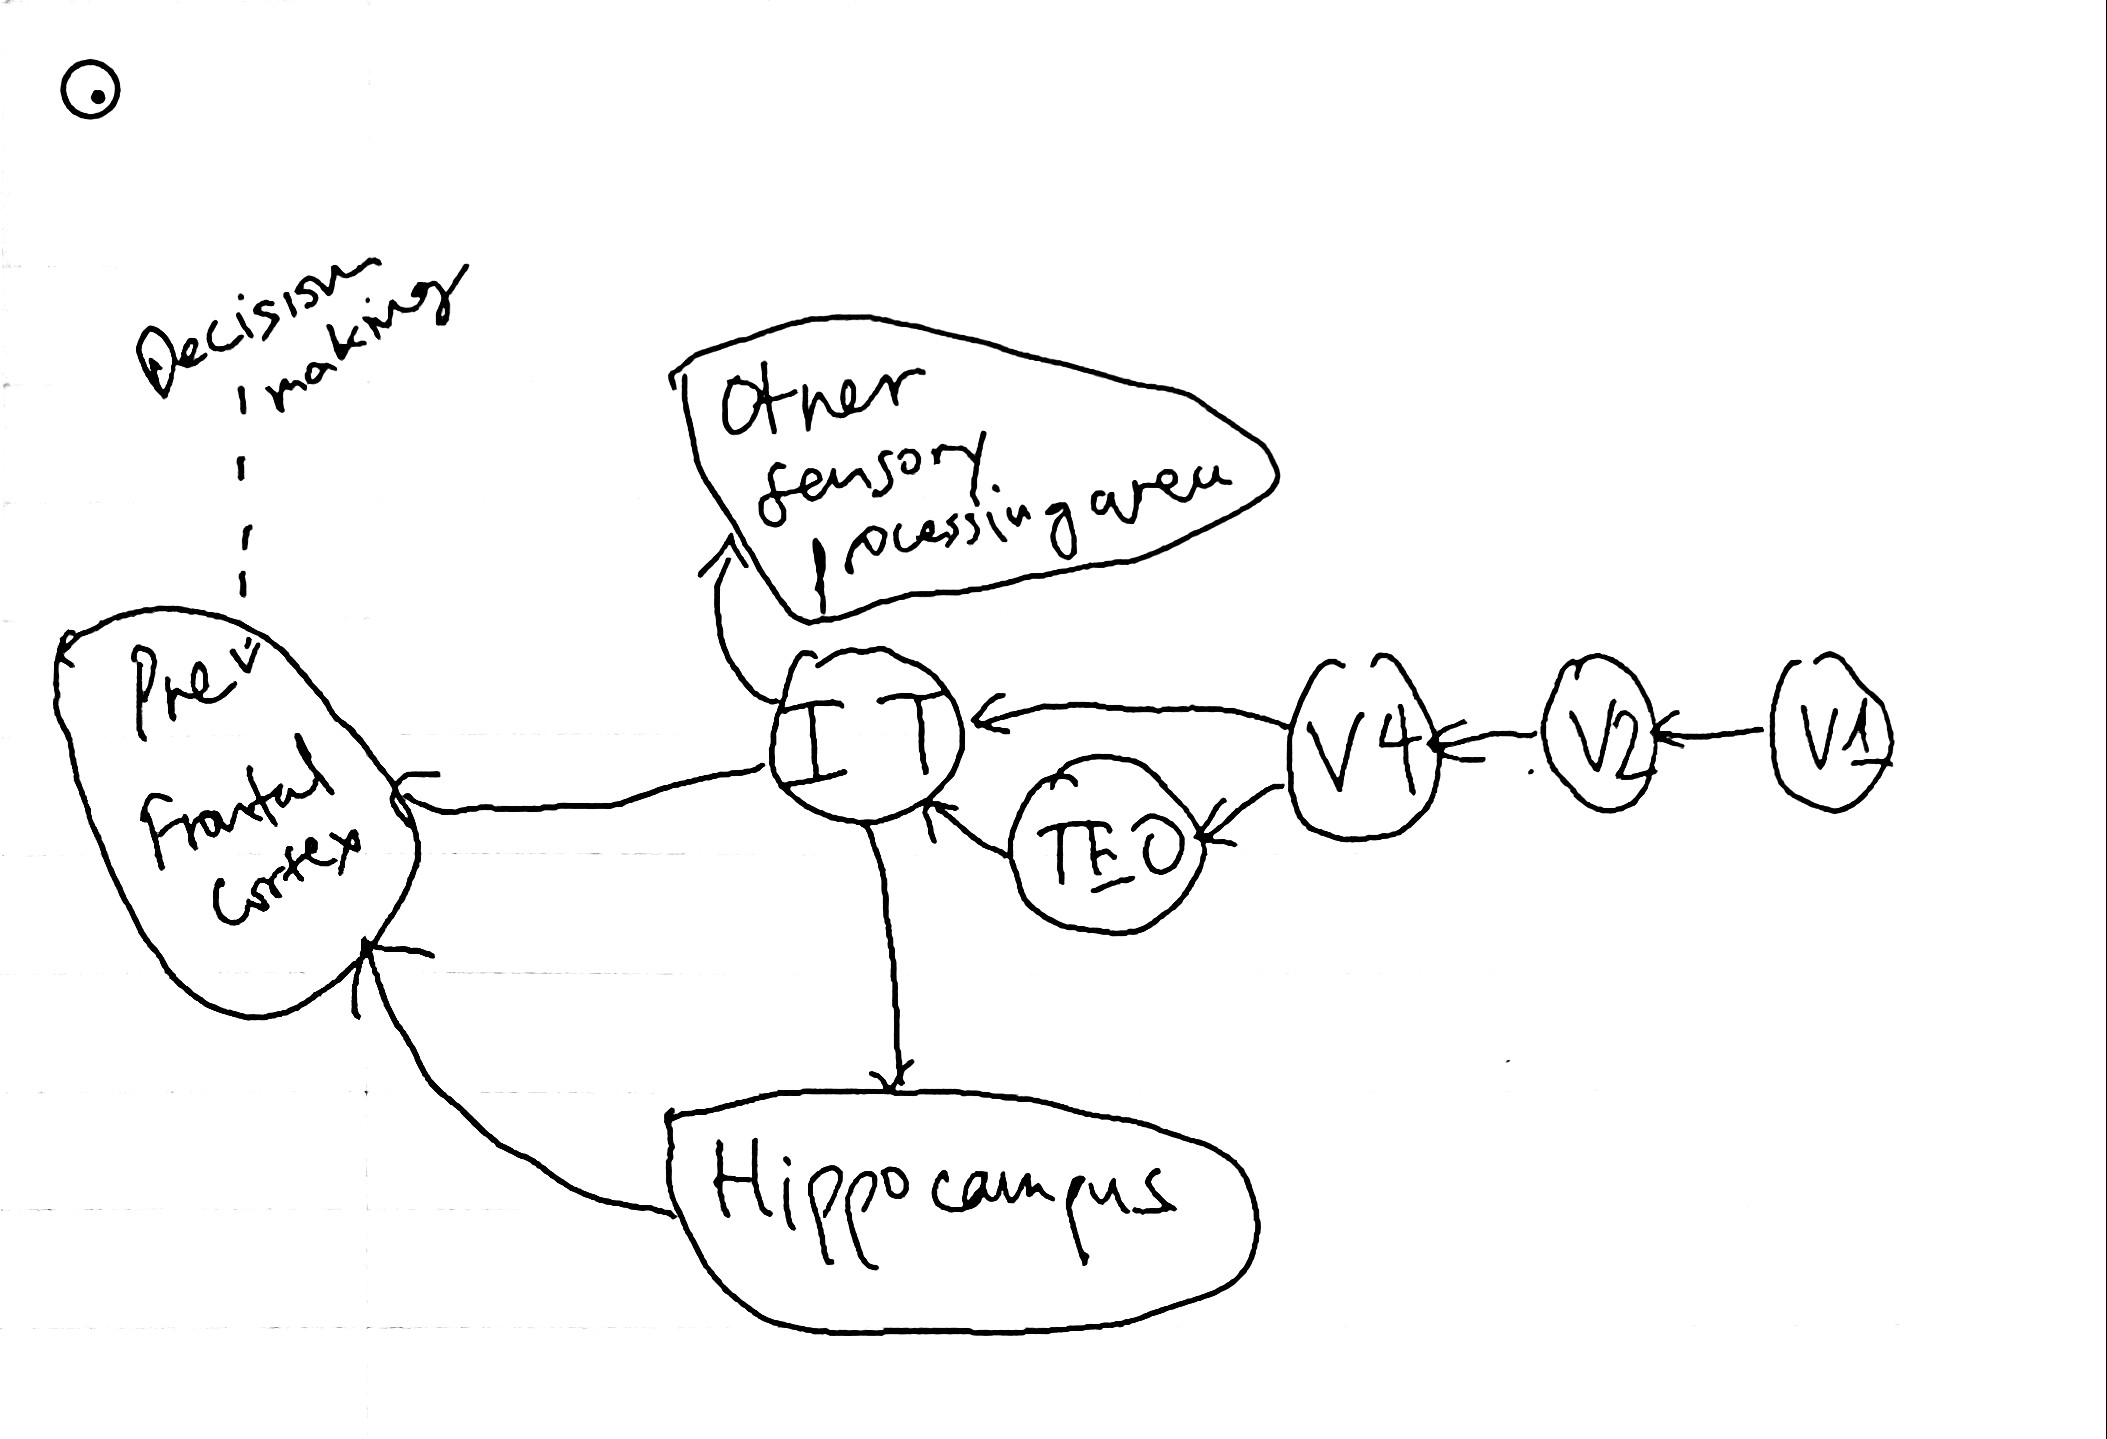 Decision
making
Other
sensory
processing area
Pre
Frontal
Cortex
IT
TEO
V4
V2
V1
Hippocampus